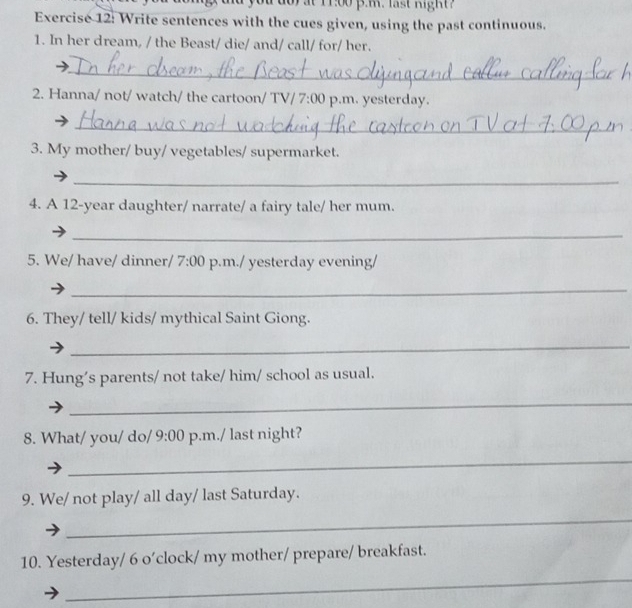 p.m. last night?
Exercise 12: Write sentences with the cues given, using the past continuous.
1. In her dream, / the Beast/ die/ and/ call/ for/ her.
→ In her dream, the Beast was diying and calling for h
2. Hanna/ not/ watch/ the cartoon/ TV/ 7:00 p.m. yesterday.
→ Hanna was not watching the cartoon on TV at 7:00 pm
3. My mother/ buy/ vegetables/ supermarket.
→
4. A 12-year daughter/ narrate/ a fairy tale/ her mum.
→
5. We/ have/ dinner/ 7:00 p.m./ yesterday evening/
→
6. They/ tell/ kids/ mythical Saint Giong.
→
7. Hung's parents/ not take/ him/ school as usual.
→
8. What/ you/ do/ 9:00 p.m./ last night?
→
9. We/ not play/ all day/ last Saturday.
→
10. Yesterday/ 6 o'clock/ my mother/ prepare/ breakfast.
→